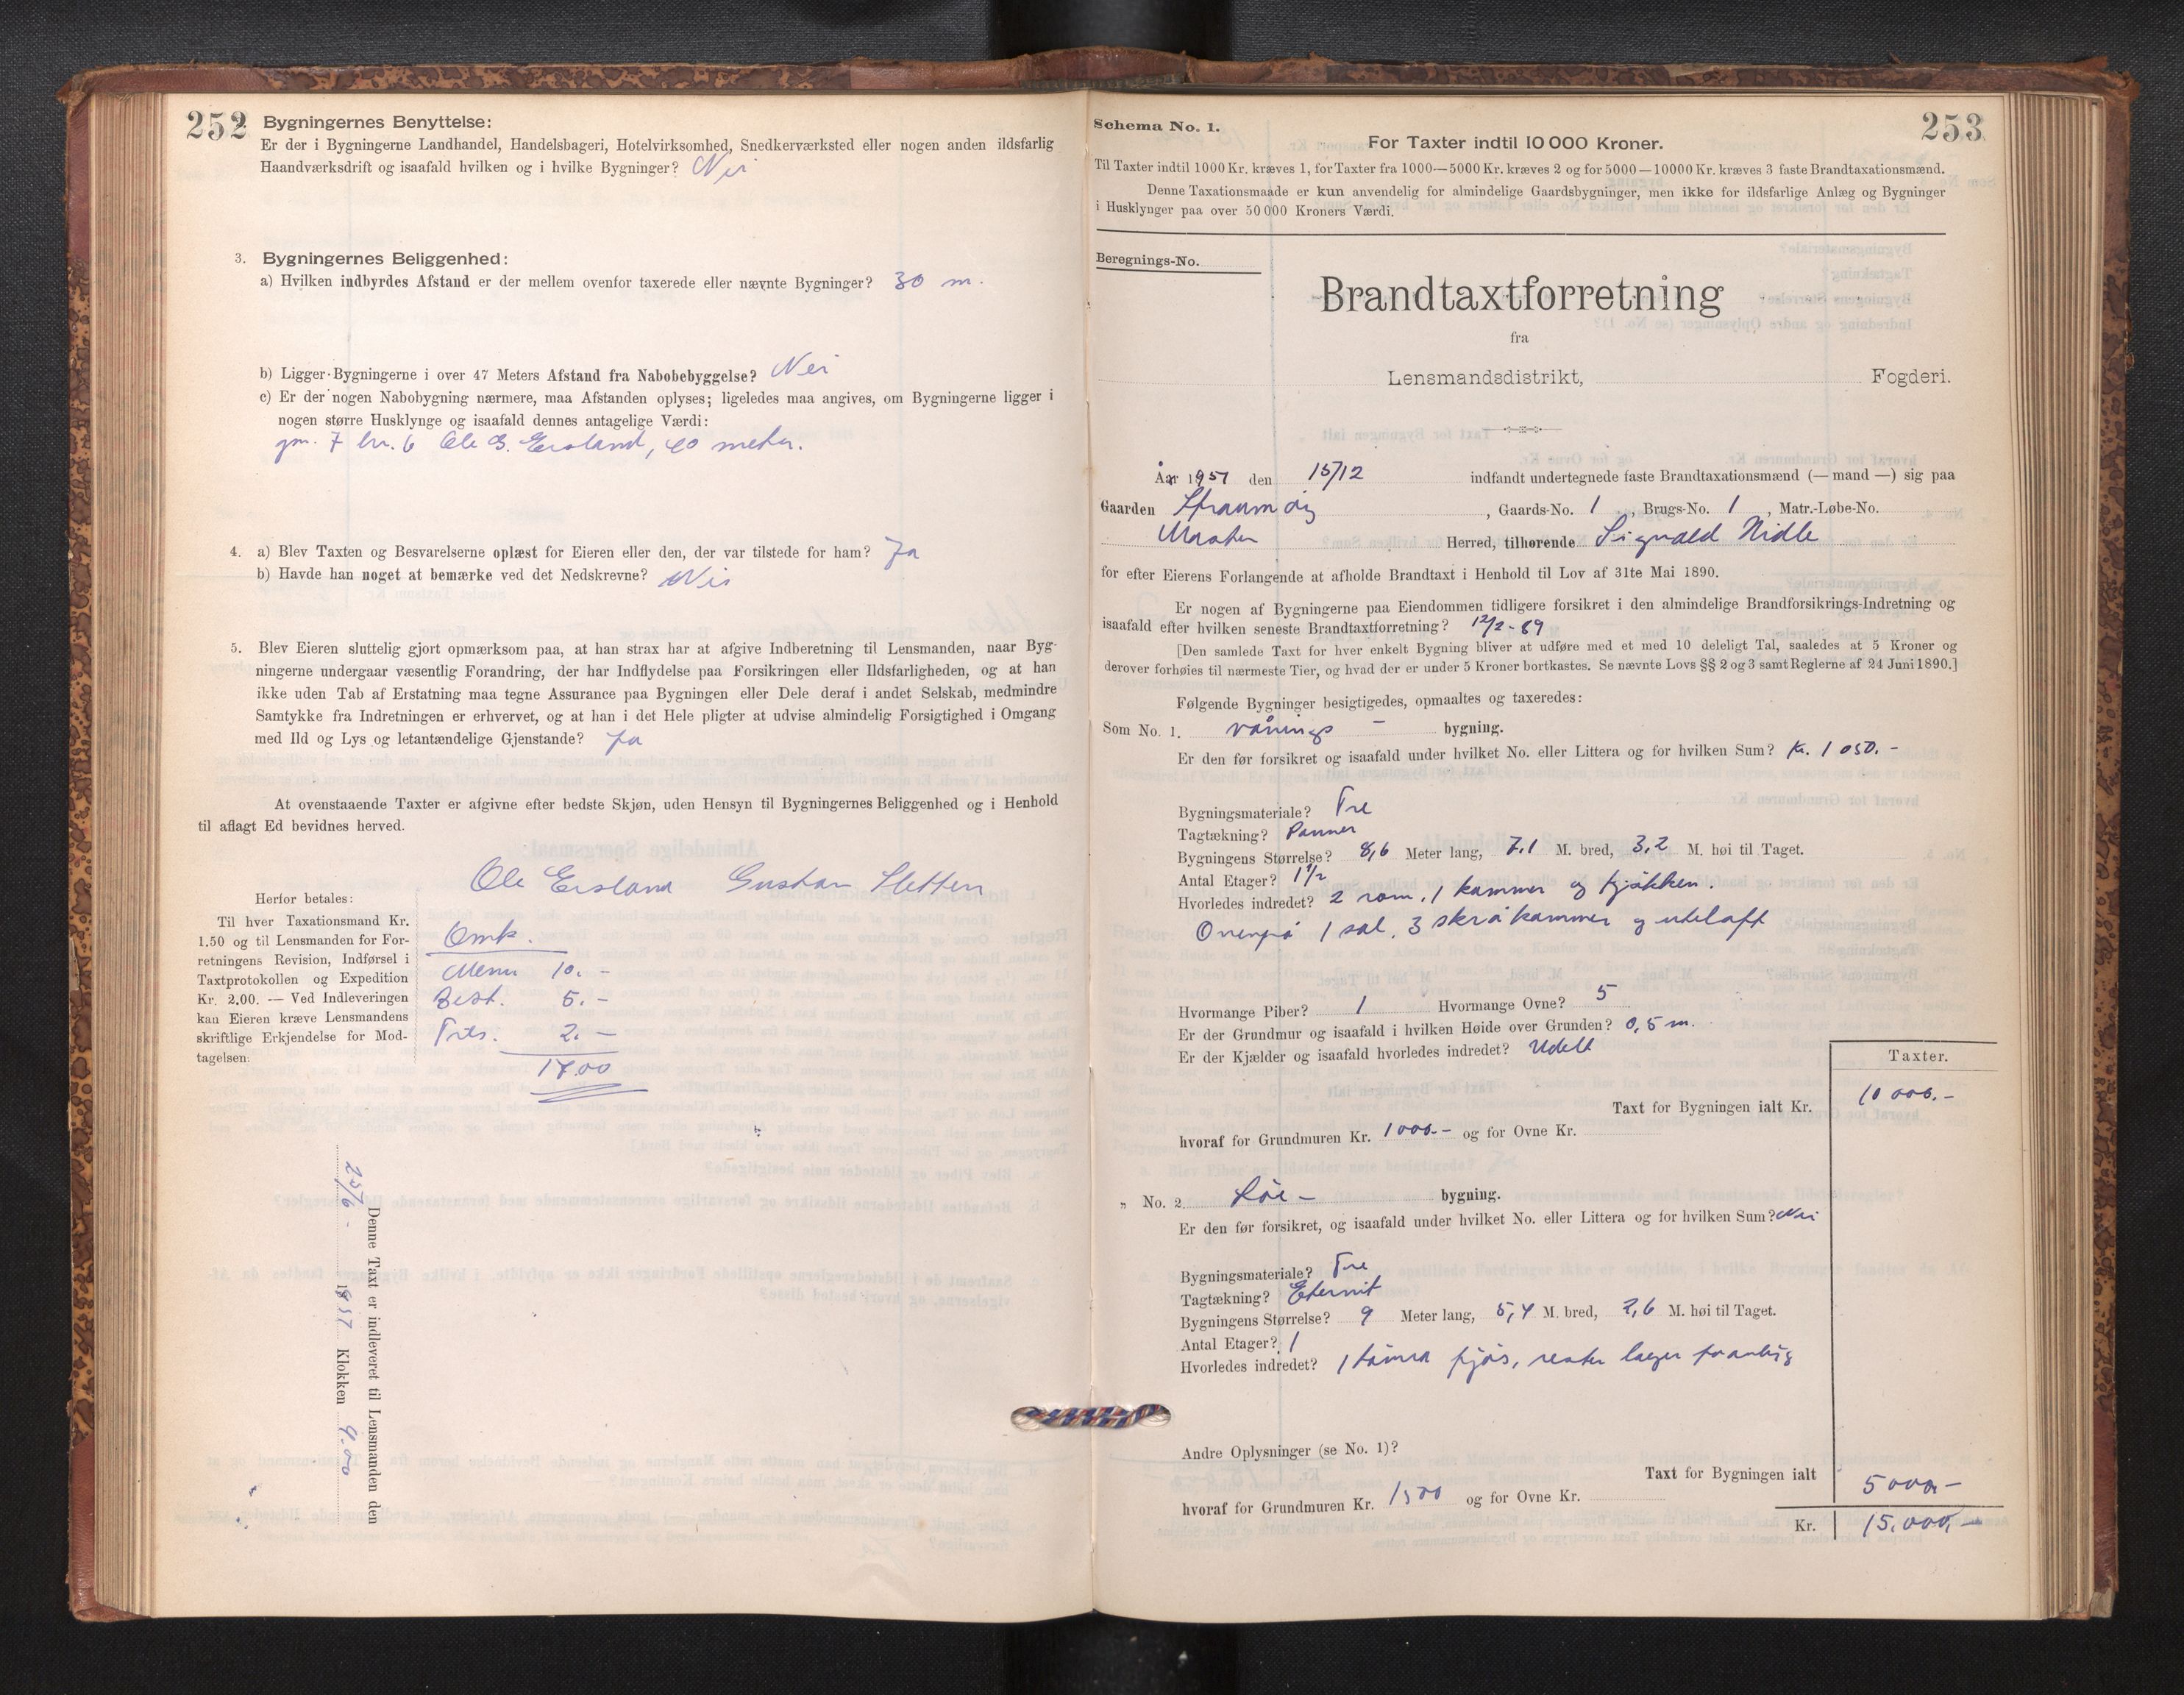 252
Bygningernes Benyttelse:
Er der i Bygningerne Landhandel, Handelsbageri, Hotelvirksomhed, Snedkerværksted eller nogen anden ildsfarlig
Haandværksdrift og isaafald hvilken og i hvilke Bygninger? Nei
3. Bygningernes Beliggenhed:
a) Hvilken indbyrdes Afstand er der mellem ovenfor taxerede eller nævnte Bygninger? 30 m.
b) Ligger Bygningerne i over 47 Meters Afstand fra Nabobebyggelse? Nei
c) Er der nogen Nabobygning nærmere, maa Afstanden oplyses; ligeledes maa angives, om Bygningerne ligger i
nogen større Husklynge og isaafald dennes antagelige Værdi:
gnr. 7 br. 6 Ole G. Ersland, 40 meter.
4. a) Blev Taxten og Besvarelserne oplæst for Eieren eller den, der var tilstede for ham? Ja
b) Havde han noget at bemærke ved det Nedskrevne? Nei
5. Blev Eieren sluttelig gjort opmærksom paa, at han strax har at afgive Indberetning til Lensmanden, naar Byg-
ningerne undergaar væsentlig Forandring, der har Indflydelse paa Forsikringen eller Ildsfarligheden, og at han
ikke uden Tab af Erstatning maa tegne Assurance paa Bygningen eller Dele deraf i andet Selskab, medmindre
Samtykke fra Indretningen er erhvervet, og at han i det Hele pligter at udvise almindelig Forsigtighed i Omgang
med Ild og Lys og letantændelige Gjenstande? Ja
At ovenstaaende Taxter er afgivne efter bedste Skjøn, uden Hensyn til Bygningernes Beliggenhed og i Henhold
til aflagt Ed bevidnes herved.
Ole Ersland Gustav Sletten
Herfor betales:
Til hver Taxationsmand Kr.
1.50 og til Lensmanden for For-
retningens Revision, Indførsel i
Taxtprotokollen og Expedition
Kr. 2.00. — Ved Indleveringen
kan Eieren kræve Lensmandens
skriftlige Erkjendelse for Mod-
tagelsen.
Omk.
Menn 10.-
Best. 5.-
2.-
17.00
Denne Taxt er indleveret til Lensmanden den
25/6 - 1957 Klokken 9.00
253
Schema No. 1.
For Taxter indtil 10 000 Kroner.
Til Taxter indtil 1000 Kr. kræves 1, for Taxter fra 1000—5000 Kr. kræves 2 og for 5000—10000 Kr. kræves 3 faste Brandtaxationsmænd.
Denne Taxationsmaade er kun anvendelig for almindelige Gaardsbygninger, men ikke for ildsfarlige Anlæg og Bygninger
i Husklynger paa over 50 000 Kroners Værdi.
Beregnings-No.
Brandtaxtforretning
fra
Lensmandsdistrikt, Fogderi.
År 1957 den 15/12 indfandt undertegnede faste Brandtaxationsmænd (— mand —) sig paa
Gaarden Straumøy, Gaards-No. 1, Brugs-No. 1, Matr.-Løbe-No.
Herred, tilhørende Sigvald Nidle
for efter Eierens Forlangende at afholde Brandtaxt i Henhold til Lov af 31te Mai 1890.
Er nogen af Bygningerne paa Eiendommen tidligere forsikret i den almindelige Brandforsikrings-Indretning og
isaafald efter hvilken seneste Brandtaxtforretning? 12/2-89
[Den samlede Taxt for hver enkelt Bygning bliver at udføre med et med 10 deleligt Tal, saaledes at 5 Kroner og
derover forhøies til nærmeste Tier, og hvad der er under 5 Kroner bortkastes. Se nævnte Lovs §§ 2 og 3 samt Reglerne af 24 Juni 1890.]
Følgende Bygninger besigtigedes, opmaaltes og taxeredes:
Som No. 1. vånings - bygning.
Er den før forsikret og isaafald under hvilket No. eller Littera og for hvilken Sum? Kr. 1050.-
Bygningsmateriale? Tre
Tagtækning? Panner
Bygningens Størrelse? 8,6 Meter lang, 7,1 M. bred, 3,2 M. høi til Taget.
Antal Etager? 1 1/2
Hvorledes indredet? 2 rom, 1 kammer og kjøkken.
Ovenpå 1 sal, 3 skråkammer og uteloft
Hvormange Piber? 1 Hvormange Ovne? 5
Er der Grundmur og isaafald i hvilken Høide over Grunden? 0,5 m.
Er der Kjælder og isaafald hvorledes indredet? Udelt
Taxter.
Taxt for Bygningen ialt Kr. 10 000.-
hvoraf for Grundmuren Kr. 1000.- og for Ovne Kr.
„ No. 2 Løe - bygning.
Er den før forsikret, og isaafald under hvilket No. eller Littera og for hvilken Sum? Nei
Bygningsmateriale? Tre
Tagtækning? Eternit
Bygningens Størrelse? 9 Meter lang, 5,4 M. bred, 2,6 M. høi til Taget.
Antal Etager? 1
Hvorledes indredet? 1 tømra fjøs, resten
Andre Oplysninger (se No. 1)?
Taxt for Bygningen ialt 5000,-
hvoraf for Grundmuren Kr. 1500 og for Ovne Kr.
Kr. 15.000,-